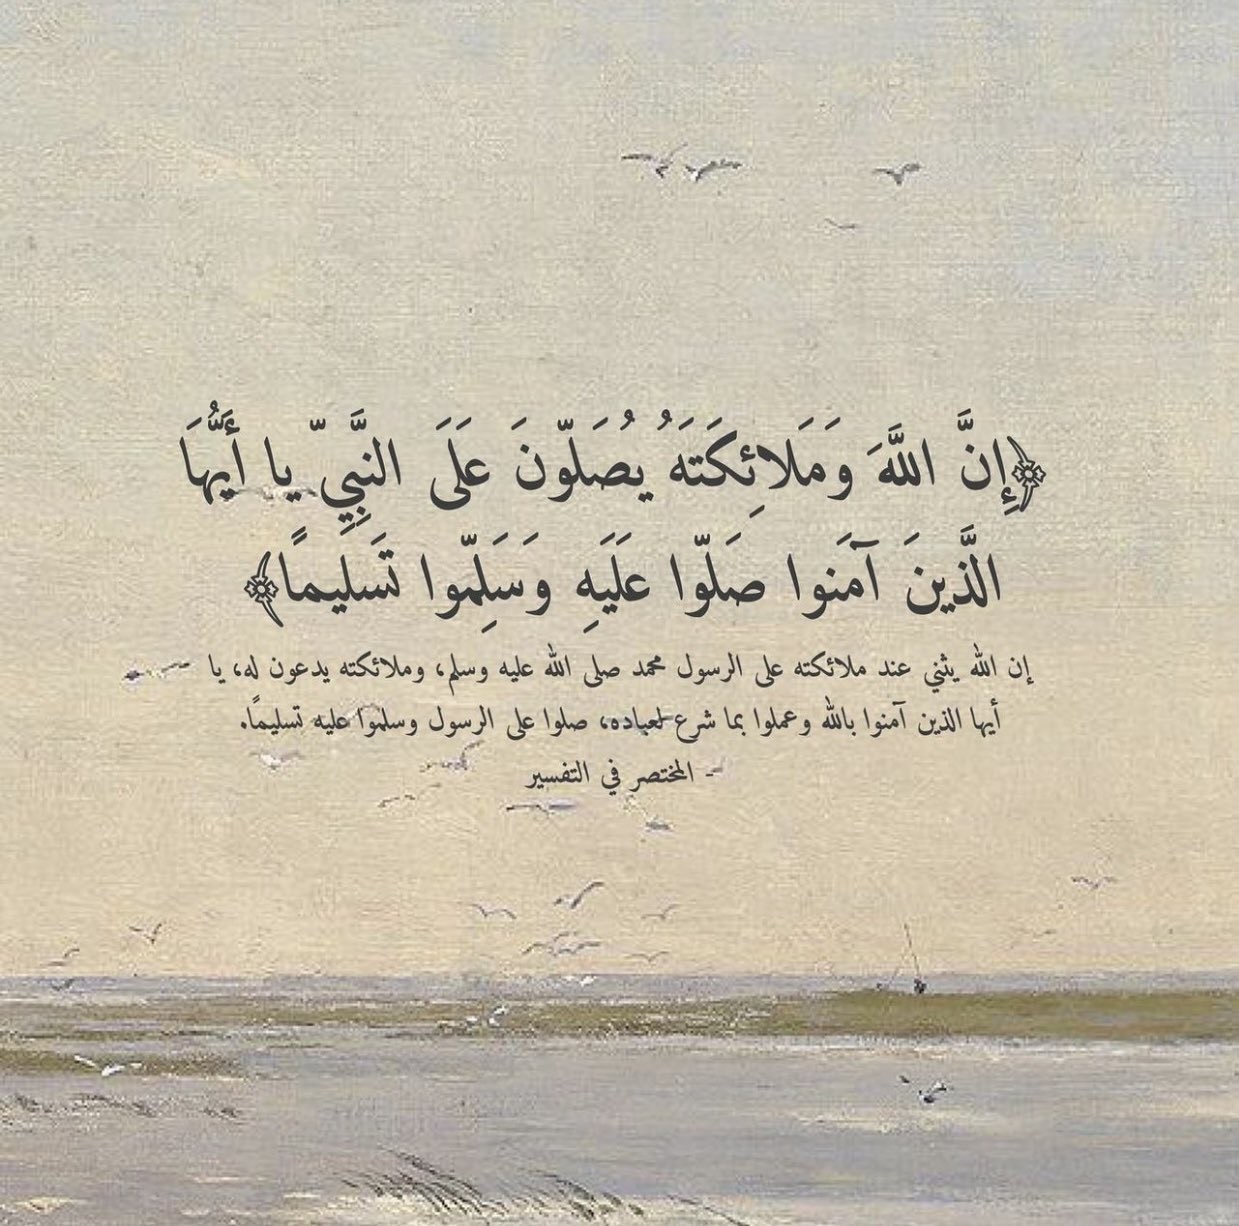 ﴿إِنَّ اللَّهَ وَمَلَائِكَتَهُ يُصَلّونَ عَلَى النَّبِيِّ يا أَيُّهَا
الَّذينَ آمَنوا صَلّوا عَلَيهِ وَسَلِّموا تَسليمًا﴾
إن الله يثني عند ملائكته على الرسول محمد صلى الله عليه وسلم، وملائكته يدعون له، يا
أيها الذين آمنوا بالله وعملوا بما شرع لعباده، صلوا على الرسول وسلموا عليه تسليمًا.
- المختصر في التفسير